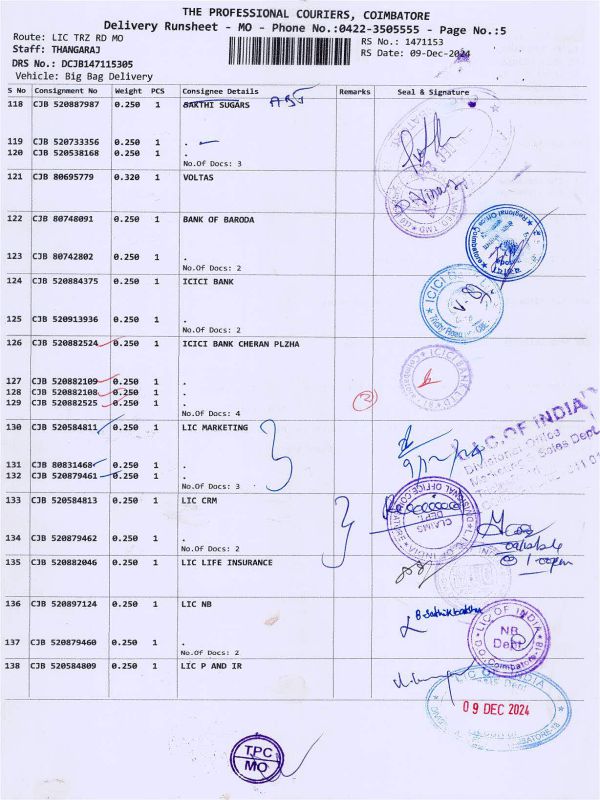 THE PROFESSIONAL COURIERS, COIMBATORE
Delivery Runsheet - MO - Phone No.:0422-3505555 - Page No.:5
Route: LIC TRZ RD MO
Staff: THANGARAJ
RS No.: 1471153
RS Date: 09-Dec-2024
DRS No.: DCJB147115305
Vehicle: Big Bag Delivery
S No Consignment No Weight PCS Consignee Details Remarks Seal & Signature
118 CJB 520887987 0.250 1 SAKTHI SUGARS
119 CJB 520733356 0.250 1 .
120 CJB 520538168 0.250 1 .
No.Of Docs: 3
121 CJB 80695779 0.320 1 VOLTAS
122 CJB 80748091 0.250 1 BANK OF BARODA
123 CJB 80742802 0.250 1 .
No.Of Docs: 2
124 CJB 520884375 0.250 1 ICICI BANK
125 CJB 520913936 0.250 1 .
No.Of Docs: 2
126 CJB 520882524 0.250 1 ICICI BANK CHERAN PLZHA
127 CJB 520882109 0.250 1 .
128 CJB 520882108 0.250 1 .
129 CJB 520882525 0.250 1 .
No.Of Docs: 4
130 CJB 520584811 0.250 1 LIC MARKETING
9/12/24
L.I.C. OF INDIA
Divisional Office
Sales Dept
131 CJB 80831468 0.250 1 .
132 CJB 520879461 0.250 1 .
No.Of Docs: 3
133 CJB 520584813 0.250 1 LIC CRM
CLAIMS DEPT.
134 CJB 520879462 0.250 1 .
No.Of Docs: 2
1.00pm
135 CJB 520882046 0.250 1 LIC LIFE INSURANCE
136 CJB 520897124 0.250 1 LIC NB
LIC OF INDIA
NB Dept
Coimbatore-18
137 CJB 520879460 0.250 1 .
No.Of Docs: 2
138 CJB 520584809 0.250 1 LIC P AND IR
LIC OF INDIA
09 DEC 2024
TPC
MO